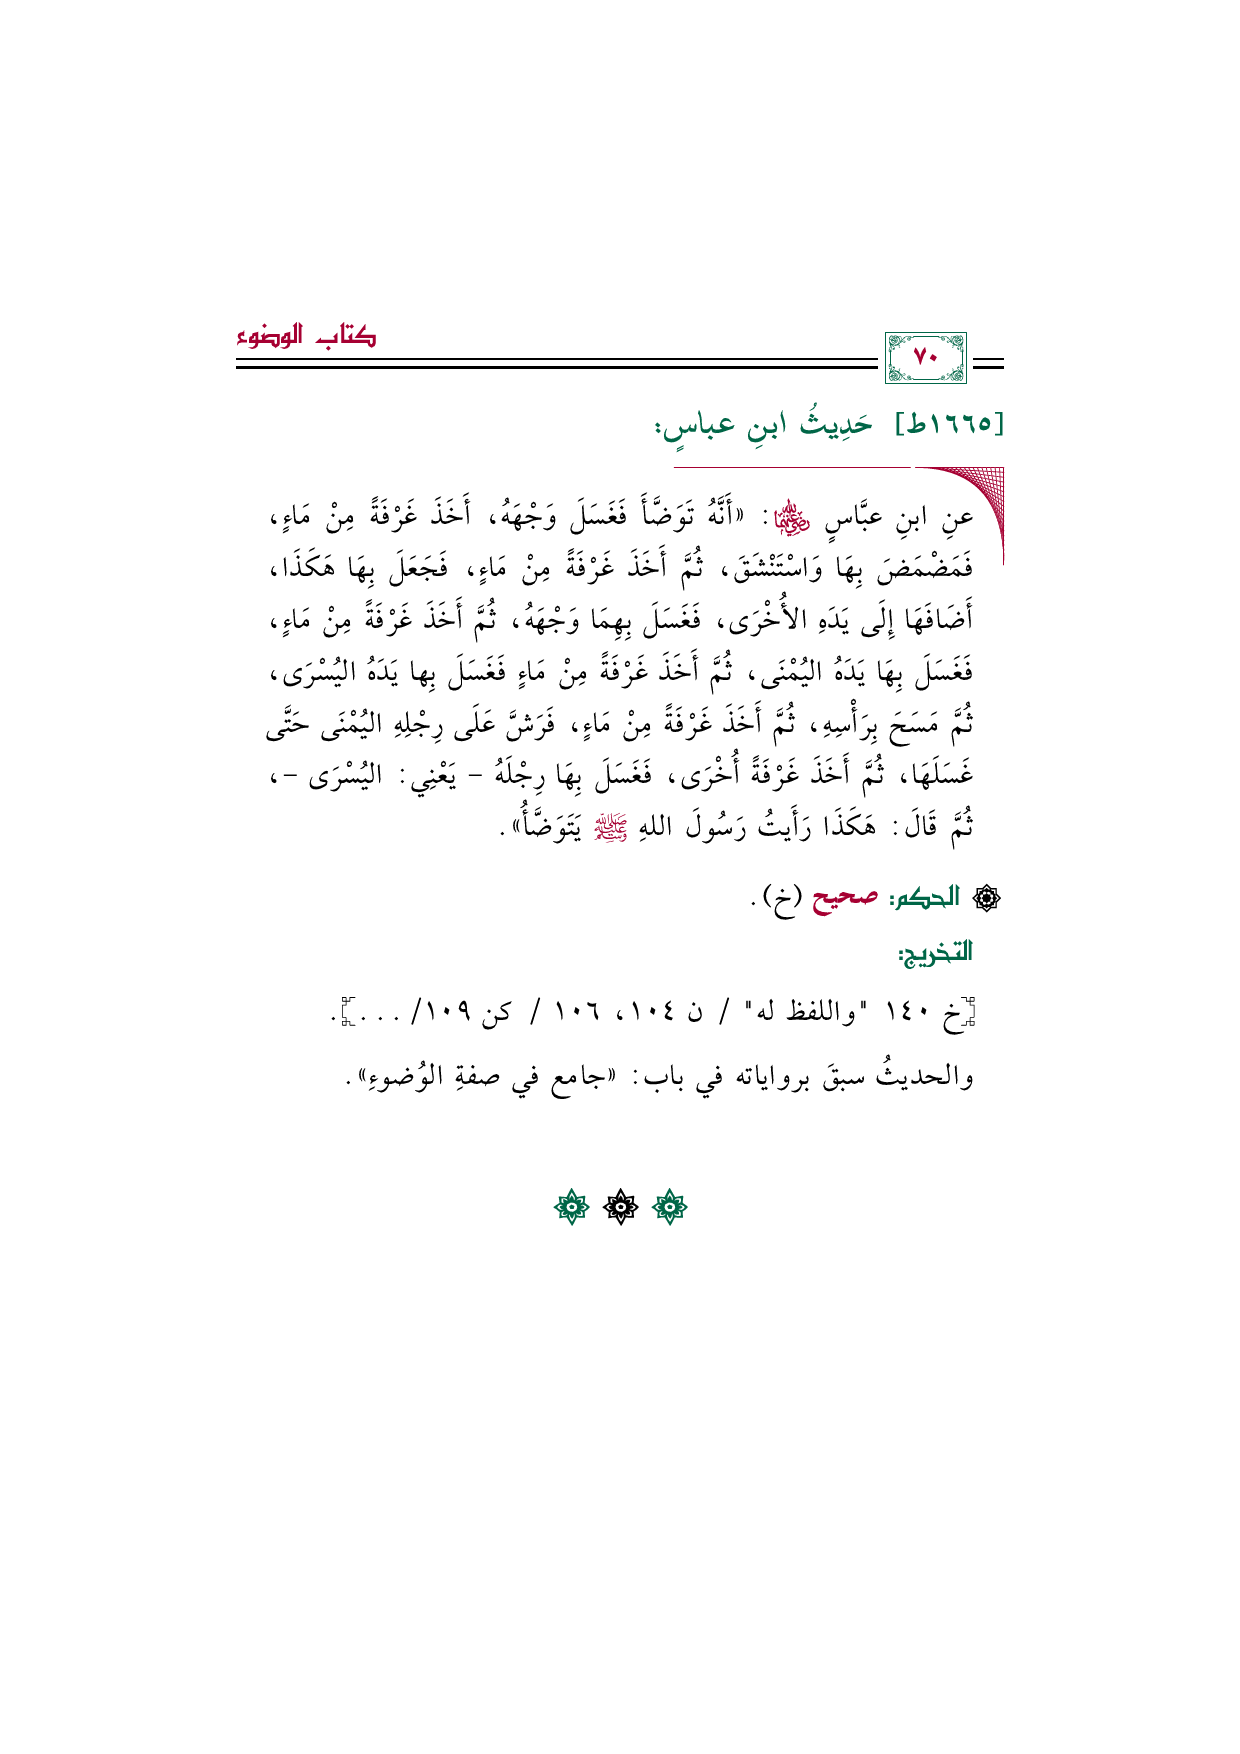 كتاب الوضوء
٧٠
[١٦٦٥ط] حَدِيثُ ابنِ عباسٍ:
عنِ ابنِ عبَّاسٍ رضي الله عنهما: «أَنَّهُ تَوَضَّأَ فَغَسَلَ وَجْهَهُ، أَخَذَ غَرْفَةً مِنْ مَاءٍ،
فَمَضْمَضَ بِهَا وَاسْتَنْشَقَ، ثُمَّ أَخَذَ غَرْفَةً مِنْ مَاءٍ، فَجَعَلَ بِهَا هَكَذَا،
أَضَافَهَا إِلَى يَدَهِ الأُخْرَى، فَغَسَلَ بِهِمَا وَجْهَهُ، ثُمَّ أَخَذَ غَرْفَةً مِنْ مَاءٍ،
فَغَسَلَ بِهَا يَدَهُ اليُمْنَى، ثُمَّ أَخَذَ غَرْفَةً مِنْ مَاءٍ فَغَسَلَ بِها يَدَهُ اليُسْرَى،
ثُمَّ مَسَحَ بِرَأْسِهِ، ثُمَّ أَخَذَ غَرْفَةً مِنْ مَاءٍ، فَرَشَّ عَلَى رِجْلِهِ اليُمْنَى حَتَّى
غَسَلَهَا، ثُمَّ أَخَذَ غَرْفَةً أُخْرَى، فَغَسَلَ بِهَا رِجْلَهُ - يَعْنِي: اليُسْرَى -،
ثُمَّ قَالَ: هَكَذَا رَأَيتُ رَسُولَ اللهِ ﷺ يَتَوَضَّأُ».
الحكم: صحيح (خ).
التخريج:
[خ ١٤٠ "واللفظ له" / ن ١٠٤، ١٠٦ / كن ١٠٩/ ...].
والحديثُ سبقَ برواياته في باب: «جامع في صفةِ الوُضوءِ».